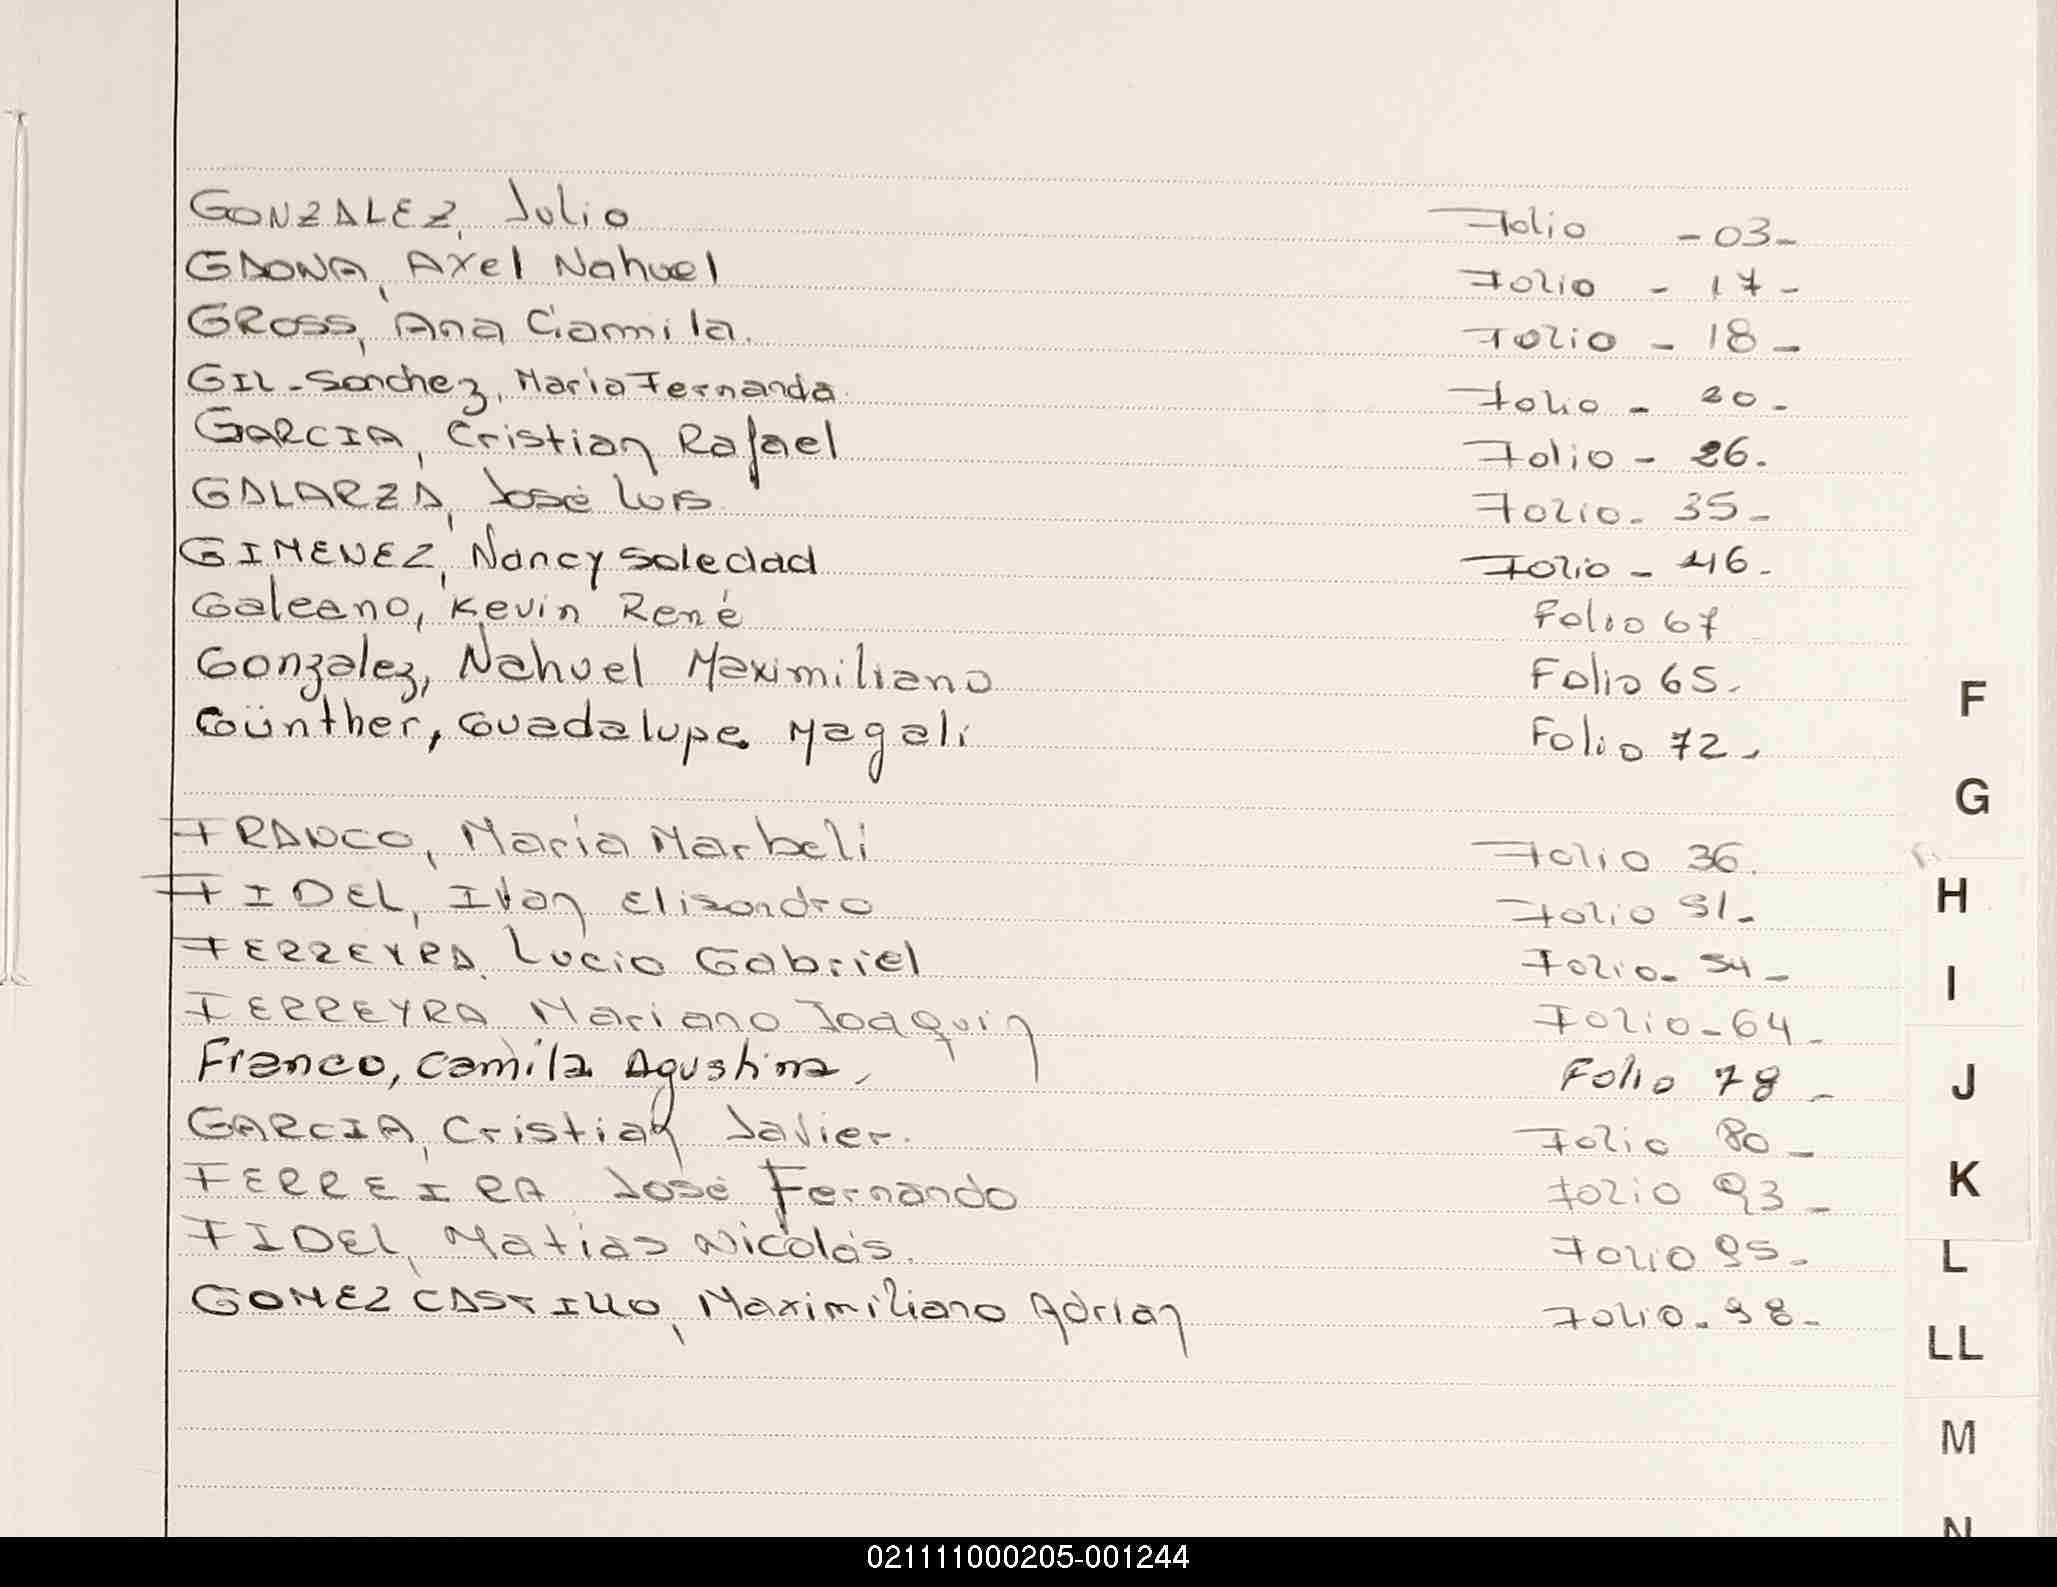 GONZALEZ, Julio Folio - 03 -
GAONA, Axel Nahuel Folio - 17 -
GROSS, Ana Camila. Folio - 18 -
GIL-Sanchez, Maria Fernanda Folio - 20 -
GARCIA, Cristian Rafael Folio - 26.
GALARZA, José Luis Folio - 35 -
GIMENEZ, Nancy Soledad Folio - 46 -
Galeano, Kevin René Folio 67
Gonzalez, Nahuel Maximiliano Folio 65.
Günther, Guadalupe Magali Folio 72 -
F
G
FRANCO, María Marbeli Folio 36.
H
FIDEL, Ivan Elisandro Folio 51 -
FERREYRA, Lucio Gabriel Folio - 54 -
I
FERREYRA Mariano Joaquin Folio - 64 -
Franco, Camila Agustina, Folio 78 -
J
GARCIA, Cristian Javier. Folio 80 -
K
FERREIRA José Fernando Folio 93 -
FIDEL, Matias Nicolás. Folio 95 -
L
GOMEZ CASTILLO, Maximiliano Adrian Folio - 98 -
LL
M
N
021111000205-001244